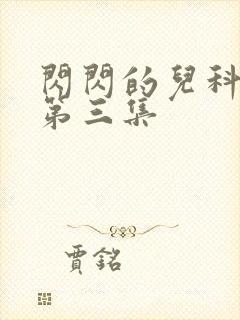 閃閃的兒科
第三集
賈銘